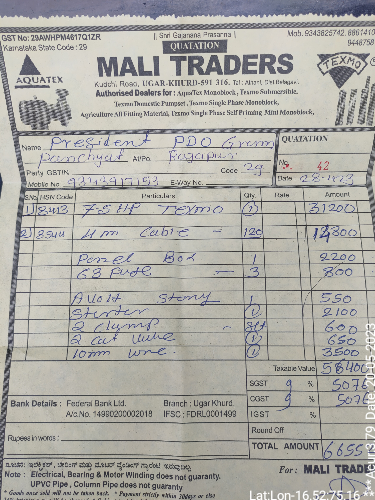 GST No: 29AWHPM4617Q1ZR
|| Shri Gajanana Prasanna ||
Mob. 9343825742, 8861410
Karnataka State Code : 29
QUATATION
9448758
MALI TRADERS
AQUATEX
TEXMO
Kudchi Road, UGAR-KHURD-591 316, Tal : Athani, Dist.Belagavi.
Authorised Dealers for : AquaTex Monoblock, Texmo Submersible,
Texmo Domestic Pumpset, Texmo Single Phase Monoblock,
Agriculture All Fitting Material, Texmo Single Phase Self Priming Mini Monoblock,
Name President PDO Gram
Panchyat A/Po.
QUATATION
Party GSTIN.
Code 29
No. 42
Mobile No.
E-Way No.
Date
S.No. HSN Code Particulars Qty. Rate Amount
1) 8413 7-5 HP Texmo 1 31200
2) 8544 4m Cable - 120 14800
Panel Box 1 2200
- 3 800
1 550
Starter 1 2100
2 Clamp - Set 600
1 650
10mm wire 1 3500
Taxable Value 56400
SGST 9 % 5076
Bank Details : Federal Bank Ltd. Branch : Ugar Khurd.
CGST 9 % 5076
A/c.No. 14990200002018 IFSC : FDRL0001499
IGST %
Round Off
Rupees in words :
TOTAL AMOUNT 6655
Note : Electrical, Bearing & Motor Winding does not guaranty
UPVC Pipe , Column Pipe does not guaranty
For : MALI TRADE
* Goods once sold will not be taken back. * Payment strictly within
Lat:Lon-16.52:75.16